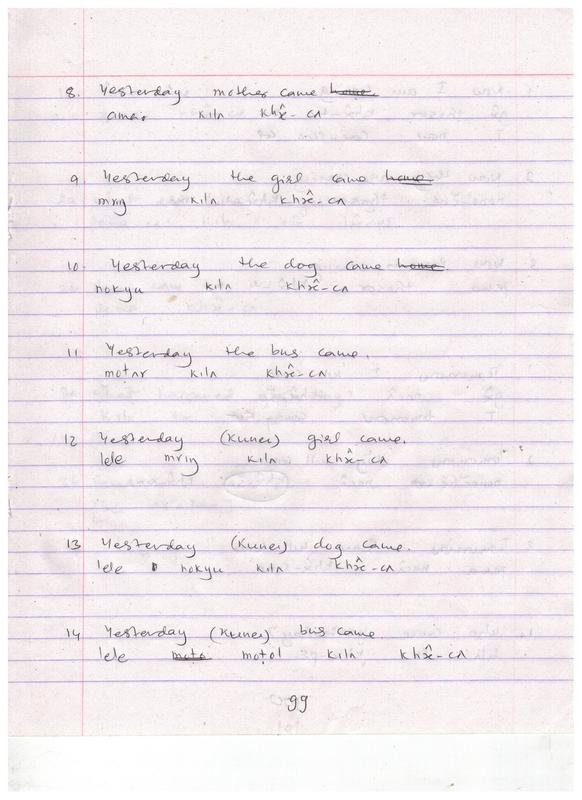 8. Yesterday mother came home.
ama. kilʌ khx̂-cʌ
9. Yesterday the girl came home
mriŋ kilʌ khx̂-cʌ
10. Yesterday the dog came home.
nokyu kilʌ khx̂-cʌ
11 Yesterday the bus came.
motʌr kilʌ khx̂-cʌ
12 Yesterday (Kuner) girl came.
lele mriŋ kilʌ khx̂-cʌ
13 Yesterday (Kuner) dog came.
lele nokyu kilʌ khx̂-cʌ
14 Yesterday (Kuner) bus came.
lele moto moṭol kilʌ khx̂-cʌ
99